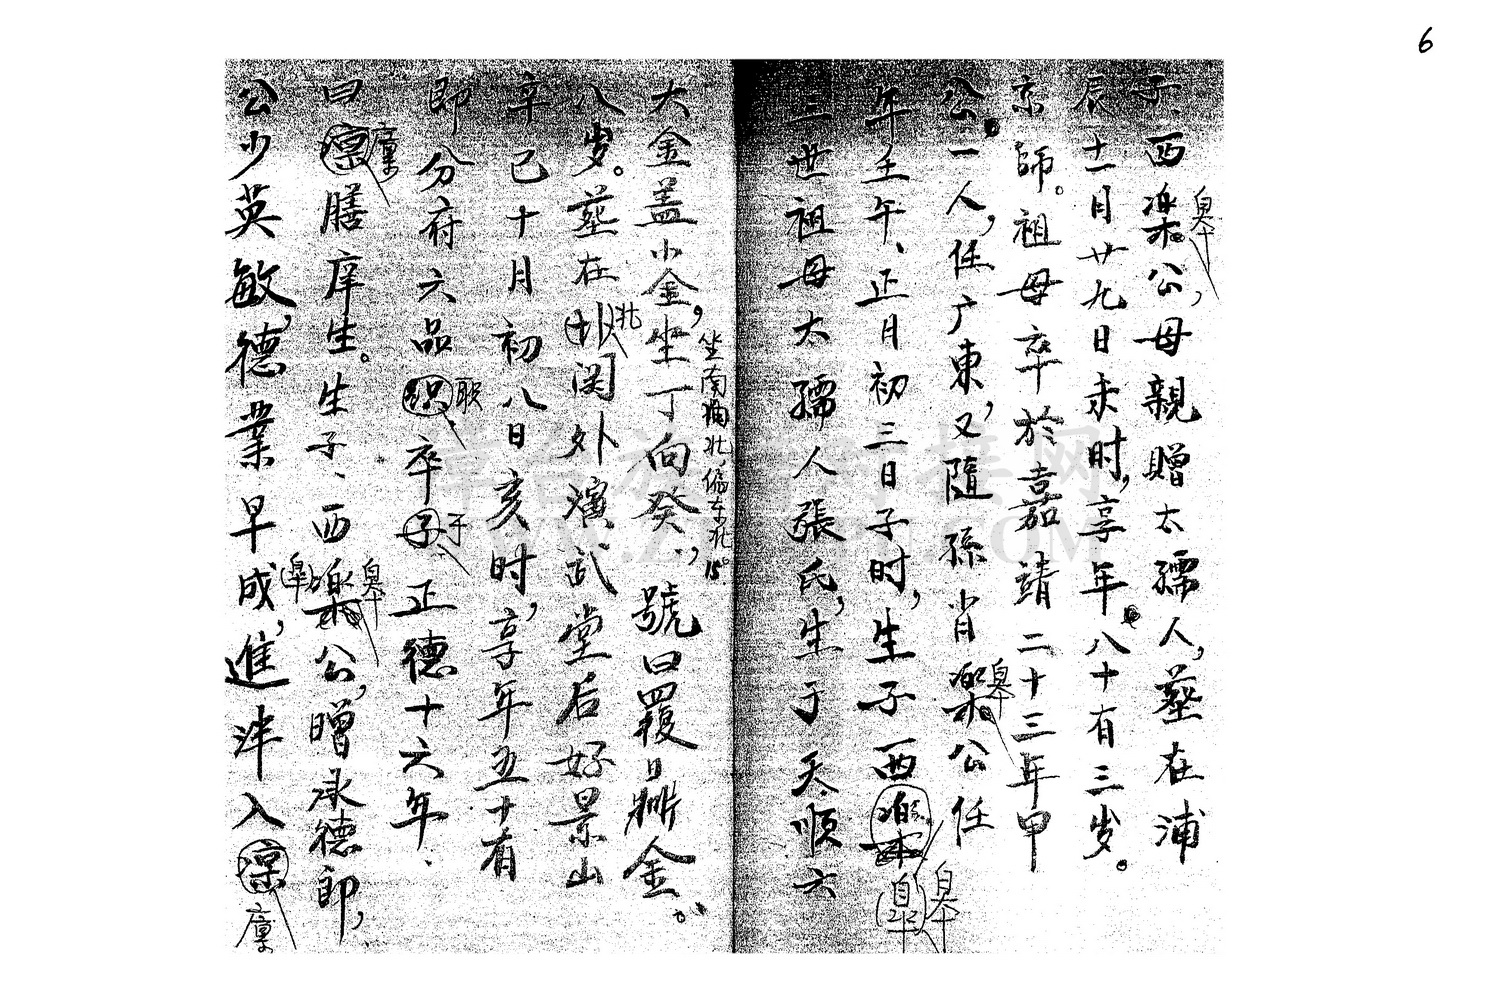 6
子、西皋公，母親贈太孺人，葬在浦
辰十一月廿九日未时，享年八十有三岁。
京師。祖母卒於嘉靖二十三年甲
公一人，任广东，又随孫肖皋公任
年壬午、正月初三日子时，生子西皋
三世祖母太孺人張氏，生于天順六
坐南向北，偏东北15°
大金盖小金，坐丁向癸，號曰覆日金。
八岁。葬在北関外演武堂后好景山
辛巳十月初八日亥时，享年五十有
郎分府六品职卒于正德十六年、
曰廩膳庠生。生子、西皋公，贈承德郎，
公少英敏，德業早成，進泮入廩